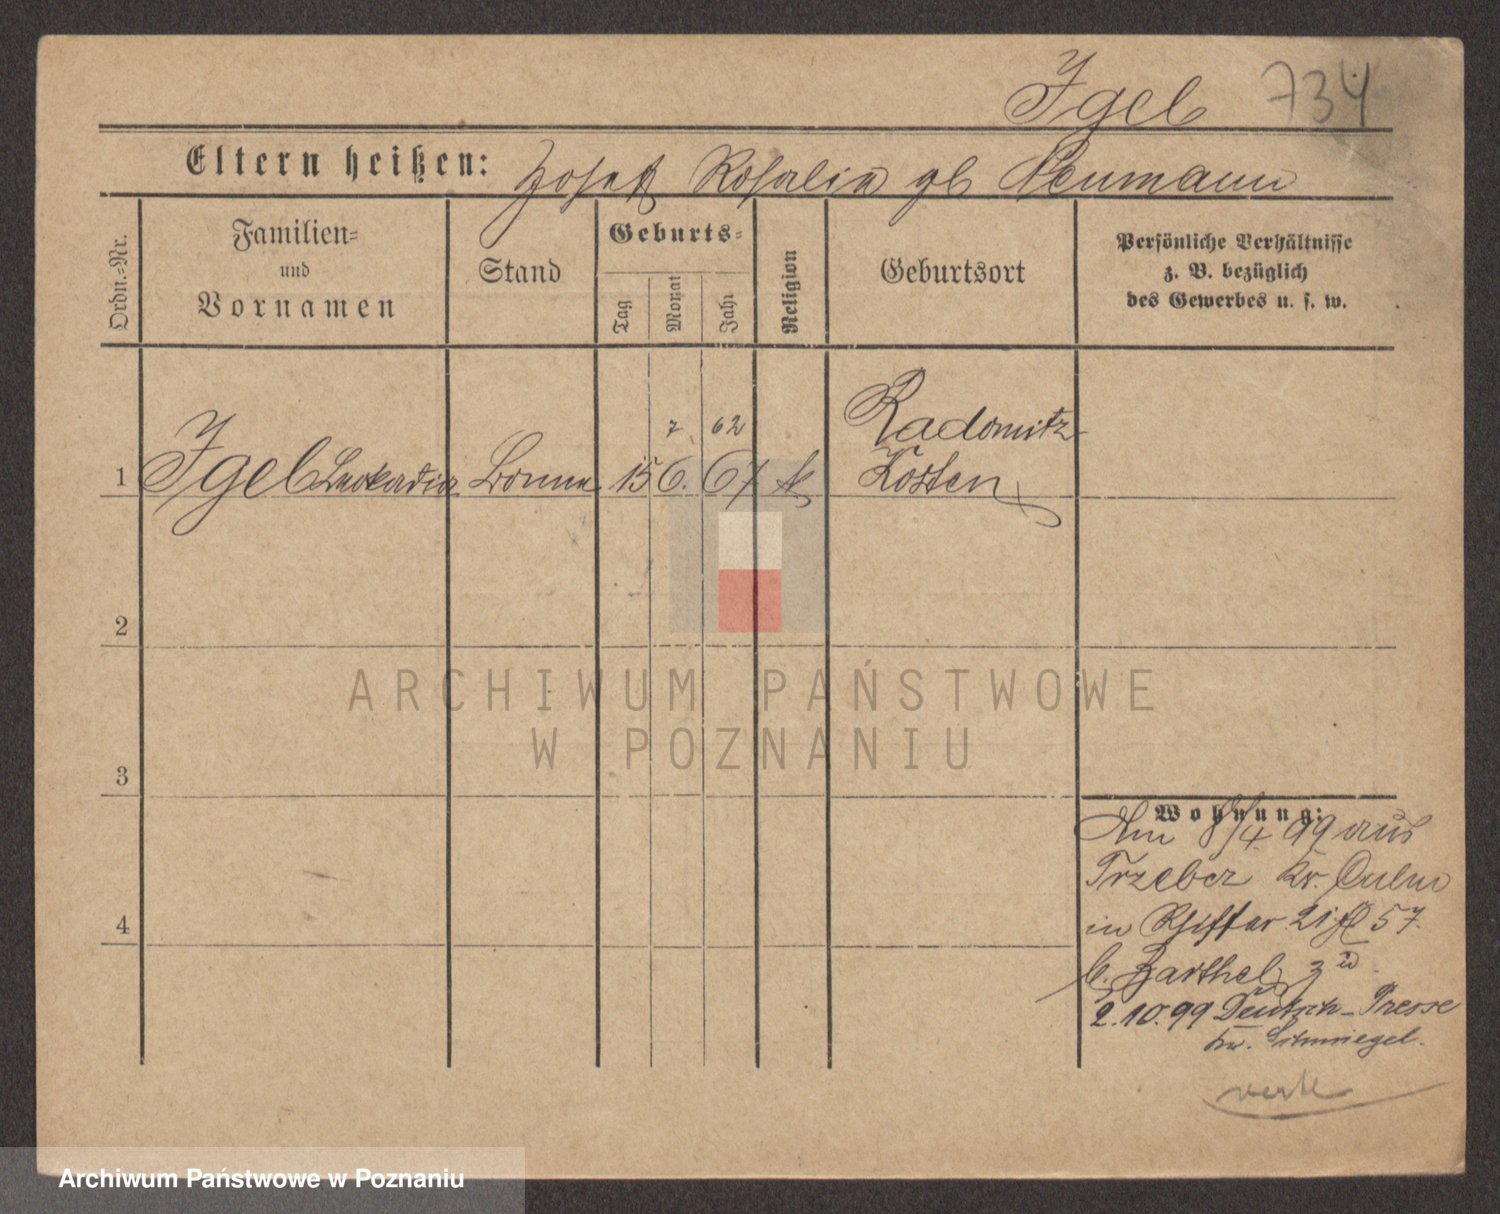 Igel 734
Eltern heißen: Josef Rosalia gb Neumann
Ordn.=Nr.
Familien=
und
Vornamen
Stand
Geburts=
Tag
Monat
Jahr
Religion
Geburtsort
Persönliche Verhältnisse
z. B. bezüglich
des Gewerbes u. s. w.
7 62 Radomitz
1 Igel Leokadia Bonne 15 6. 67 k Kosten
2
ARCHIWUM PAŃSTWOWE
W POZNANIU
3
Wohnung:
Am 8/4 99 aus
Trzebcz Kr. Culm
in 21 57.
b. Barthel
4
2.10.99 Deutsch-Presse
Kr. Schmiegel.
Archiwum Państwowe w Poznaniu